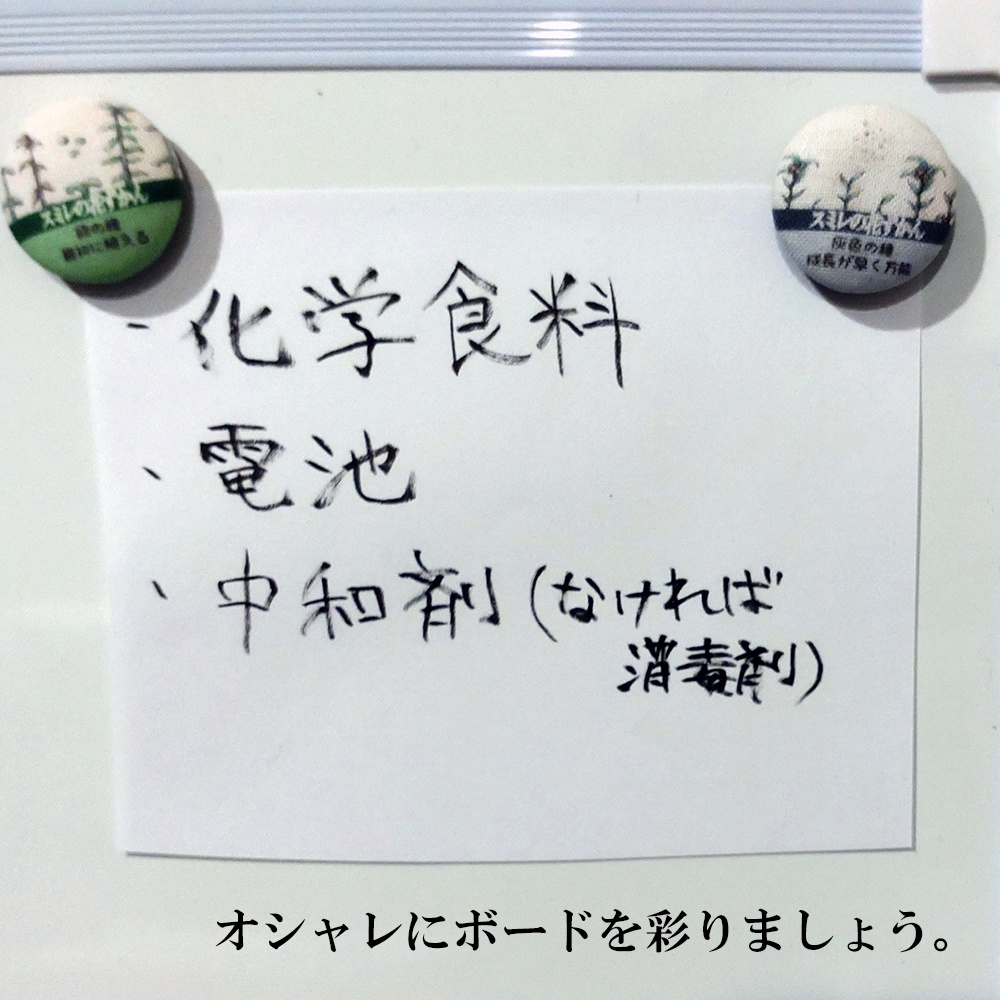 スミレの花ずかん
緑の種
最初に植える
スミレの花ずかん
灰色の種
成長が早く万能
・化学食料
・電池
・中和剤(なければ
消毒剤)
オシャレにボードを彩りましょう。